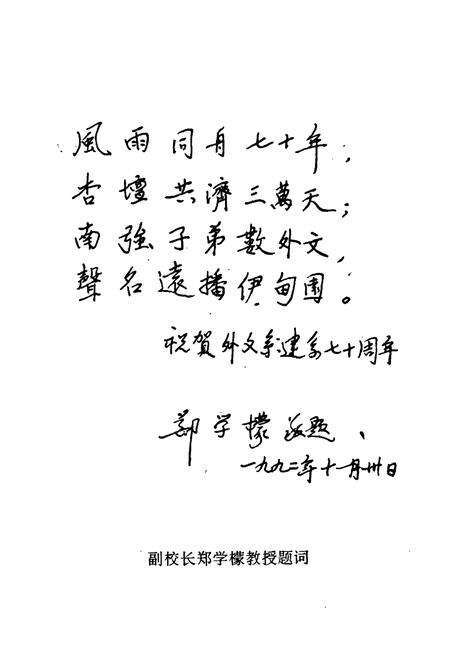 風雨同舟七十年，
杏壇共濟三萬天；
南強子弟數外文，
聲名遠播伊甸園。
祝賀外文系建系七十周年
鄭学檬 敬題
一九九二年十一月卅日
副校长郑学檬教授题词